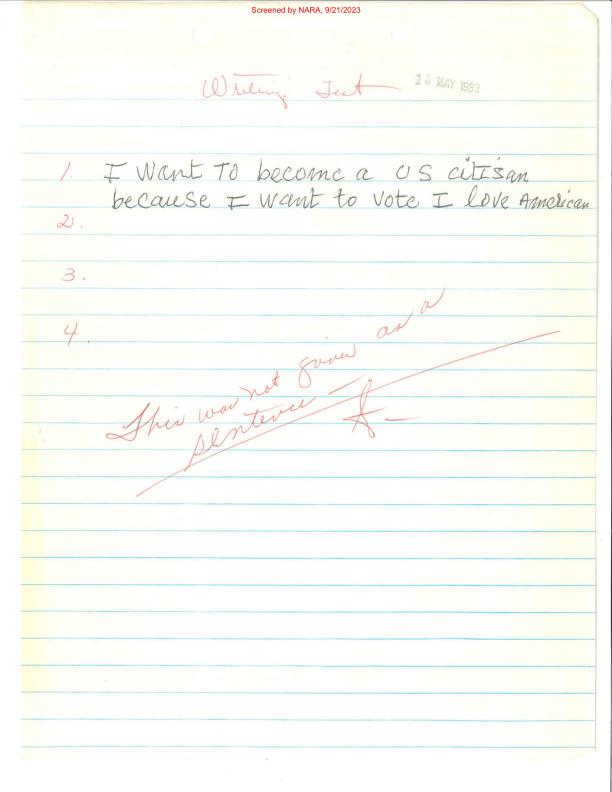 Screened by NARA, 9/21/2023
Writing Test
23 MAY 1983
1. I Want To become a US citisan
because I want to vote I love American
2.
3.
4.
This was not given as a
sentence —